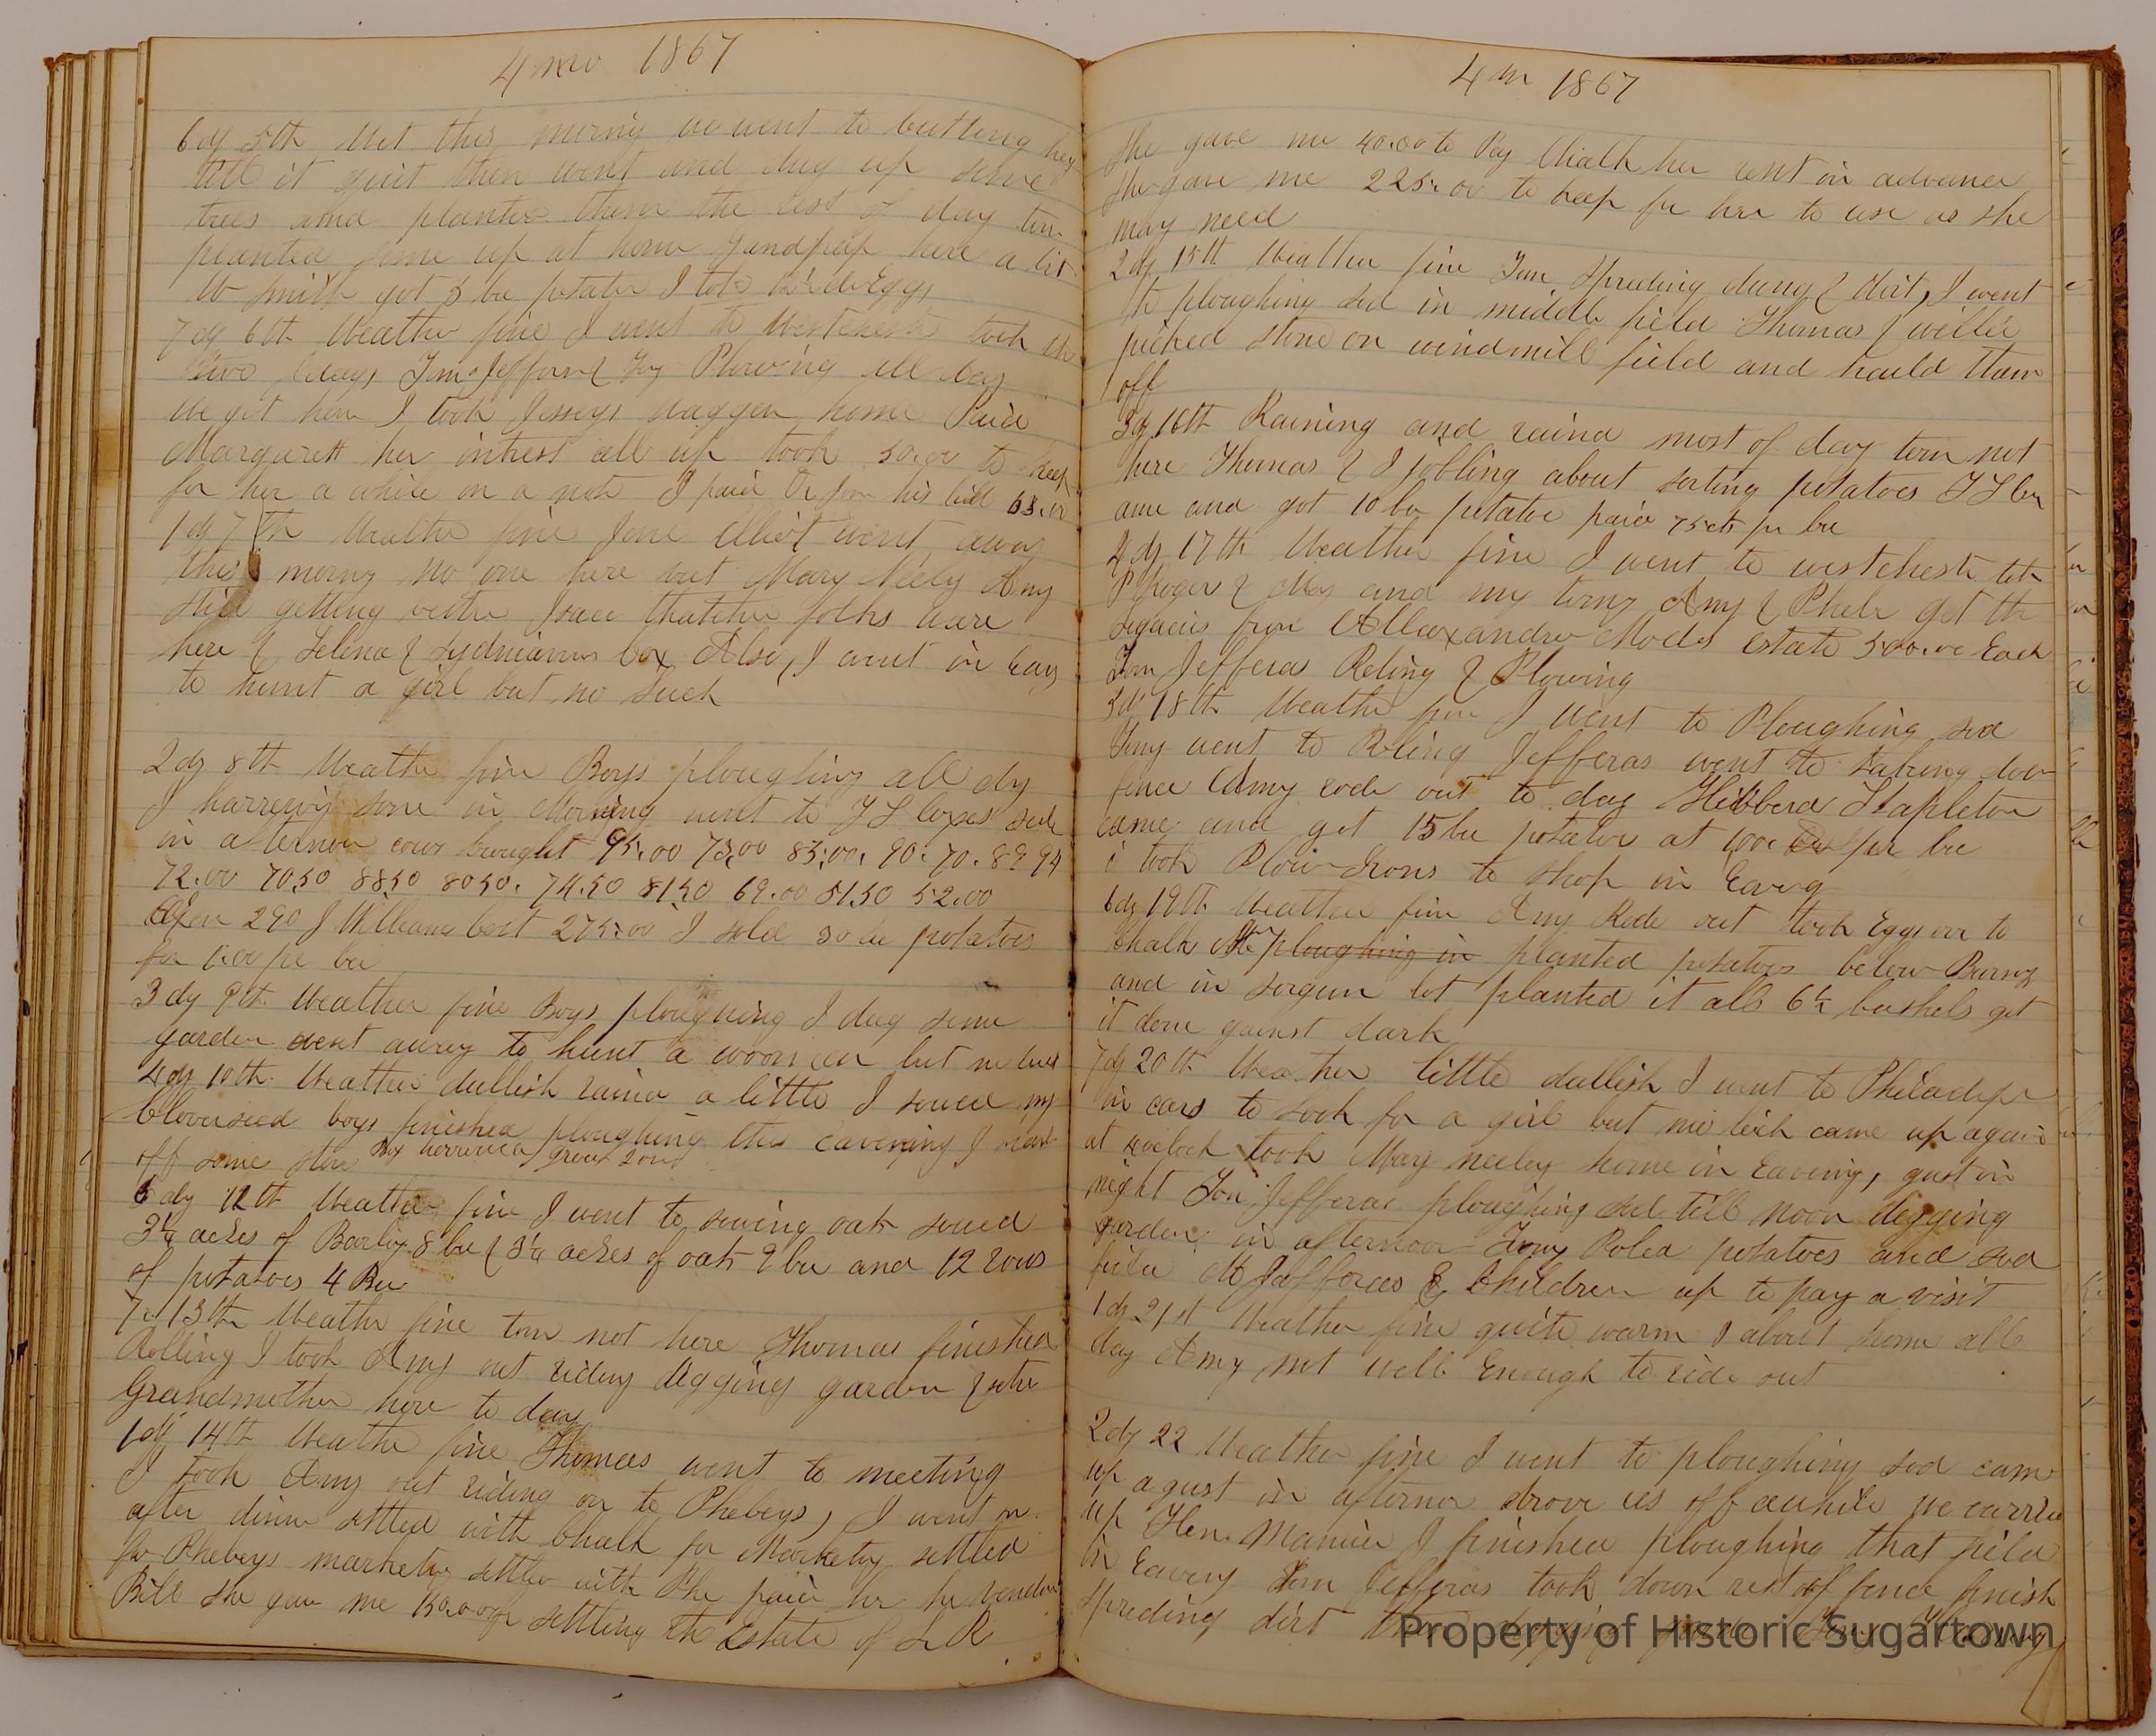 4 mo 1867
6 dy 5th Wet this morning we went to cutting hay
till it quit then went and dug up some
trees and planted them the rest of day tom
planted some up at home Grandpap here a bit
W Smith got 5 bu potatoes I took 12 doz Eggs
7 dy 6th Weather fine I went to Westchester took the
two Tom Jefferas & Plowing all day
We got here I took Jesseys waggon home Paid
Margarett her intrest all up took 50.00 to keep
for her a while on a note I paid Dr his bill 63.00
1 dy 7th Weather fine Jane Elliot went away
this morny no one here but Mary Neely Amy
still getting better Isaac thatcher folks ware
here & Selena & Lydniann Cox Also, I went in Eavg
to hunt a girl but no luck
2 dy 8th Weathe fine Boys ploughing all dy
I harrowing some in Morning went to J S Coxes sale
in afternoon cows brought 95.00 73.00 83.00. 90. 70. 89 94
72.00 70.50 88.50 80.50. 74.50 81.50 69.00 51.50 52.00
Oxen 290 J Williams bort 275.00 I sold 30 bu potatoes
for 1.00 pe bu
3 dy 9th Weather fine Boys ploughing I dug some
garden went away to hunt a woomen but no luck
4 dy 10th Weather dullish raind a little I sowed my
Cloverseed boys finished ploughing this eavening I
off some stone
6 dy 12th Weather fine I went to sowing oats sowed
3¼ acres of Barley 8 bu & 3¼ acres of oats 9 bu and 12 rows
of potatoes 4 Bu
7 d 13th Weather fine tom not here Thomas finished
Rolling I took Amy out riding digging garden &
Grandmother here to day
1 dy 14th Weathe fine Thomas went to meeting
I took Amy out riding on to Phebeys, I went on
after dinner settled with Chalk for Marketing settled
for Phebeys marketing settled with She paid her he vendue
Bill she gave me 150.00 for settling the Estate of S R
4 m 1867
She gave me 40.00 to Pay Chalk her rent in advance
She gave me 225.00 to keep for her to use as she
may need
2 dy 15th Weather fine Tom Spreding dung & dirt, I went
to ploughing sod in middle field Thomas & willie
picked stone on windmill field and hauld tham
off
3 dy 16th Raining and raind most of day tom not
here Thomas & I jobling about sorting potatoes J S Cox
came and got 10 bu potatoe paid 75 cts per bu
4 dy 17th Weather fine I went to westcheste took
P Roger & and my torny Amy & Phebe got the
Legacies from Allaxandrew Modes Estate 500.00 Each
Tom Jefferas Roling & Plowing
5 d 18th Weathe fine I went to Ploughing sod
Tomy went to Roling Jefferas went to taking down
fence Amy rode out to day Hibberd Stapleton
came and got 15 bu potatoe at 1.00 per bu
i took Plow Irons to shop in Eavg
6 dy 19th Weather fine Amy Rode out took Eggs over to
Chalk We ploughing in planted potatoes below Barny
and in sorgum lot planted it all 6½ bushels got
it done gainst dark
7 dy 20th Weather little dullish I went to Philadep
in cars to look for a girl but no luck came up again
at oclock took Mary neeley home in Eavening, gust in
night Tom Jefferas ploughing sod till noon digging
garden in afternoon Tomy Roled potatoes and sod
field M Jefferas & Children up to pay a visit
1 dy 21st Weather fine quite warm I about home all
day Amy not well Enough to ride out
2 dy 22 Weather fine I went to ploughing sod came
up a gust in afternoon drove us off awhile we carried
up Hen Manure I finished ploughing that field
in Eaveng Tom Jefferas took down rest of fence finish
Spreding dirt
Property of Historic Sugartown